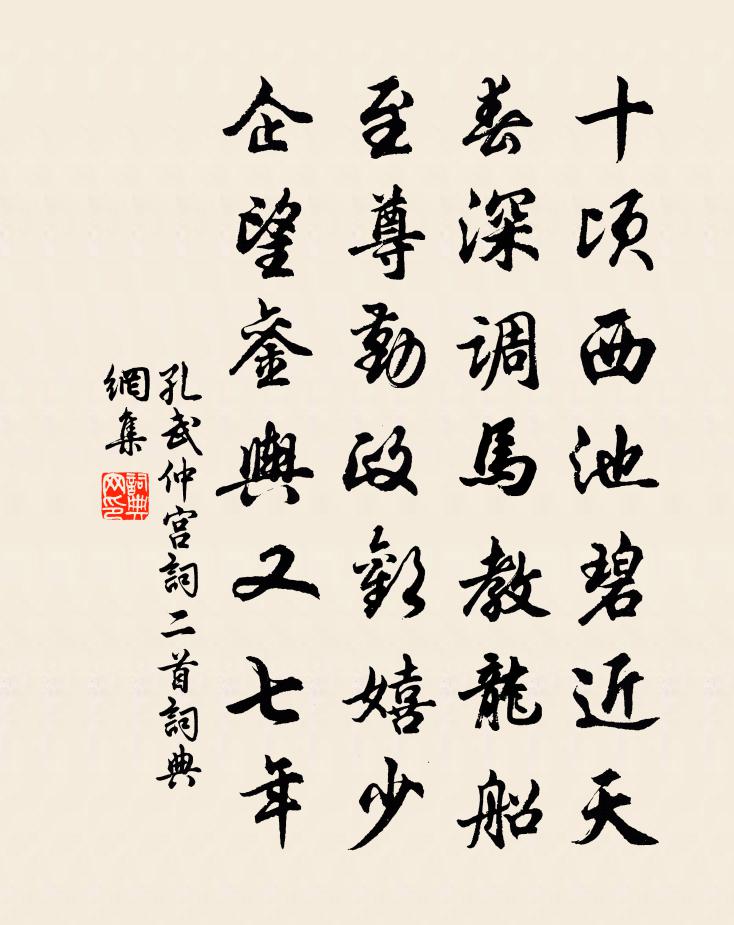 十頃西池碧近天
春深調馬教龍船
至尊勤政歡嬉少
企望鑾輿又七年
孔武仲宮詞二首詞典
網集
詞典
网印